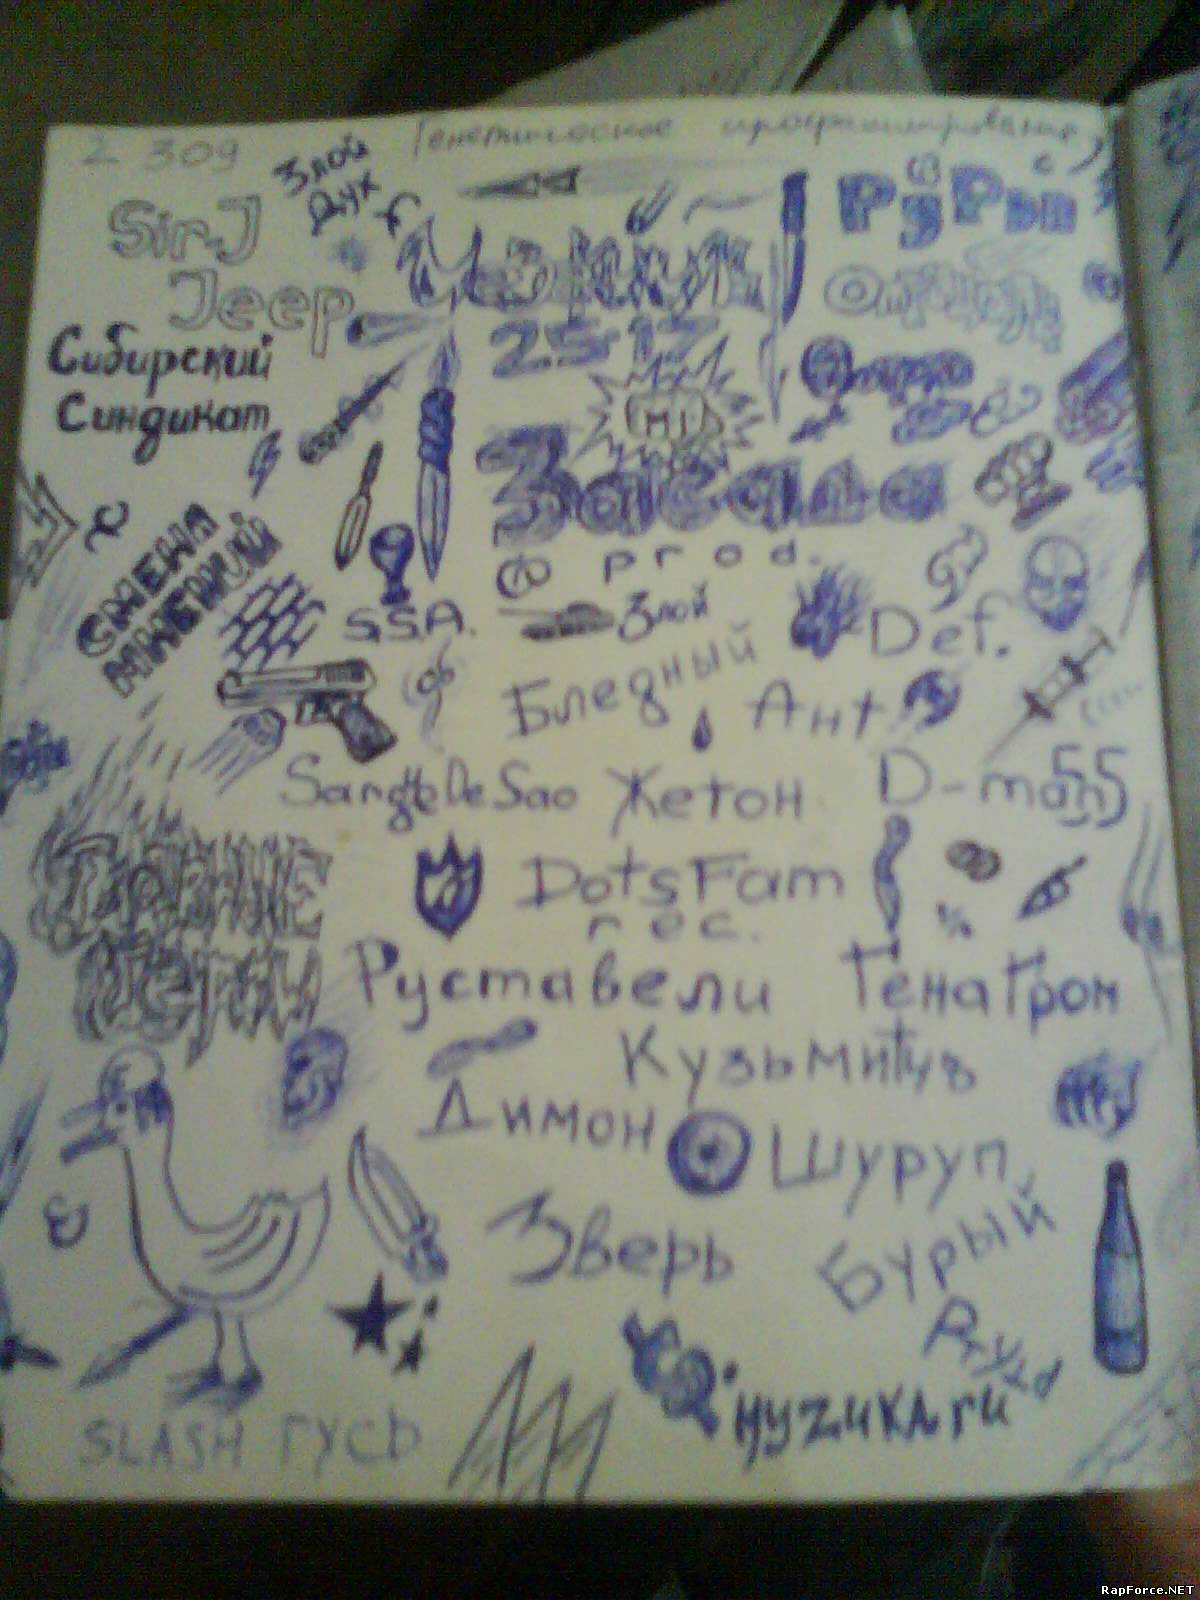 2 309
(Генетическое программирование)
Злой
Дух
Sir-J
Jeep
РуРып
Сибирский
Синдикат
25-17
Птаха
Засада
prod.
Смена
Мнений
S.S.A.
Злой
Def.
Бледный
Ант
SangteDeSao
Жетон
D-man 55
DotsFam
rec.
Руставели
Гена Гром
Кузьмитчъ
Димон
Шуруп
Зверь
Бурый
МУZИКА.ru
SLASH ГУСЬ
RapForce.NET